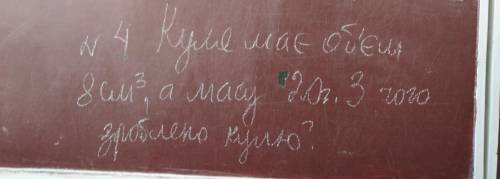 N 4 Куля має об'єм
8 см³, а масу 20г. З чого
зроблено кулю?